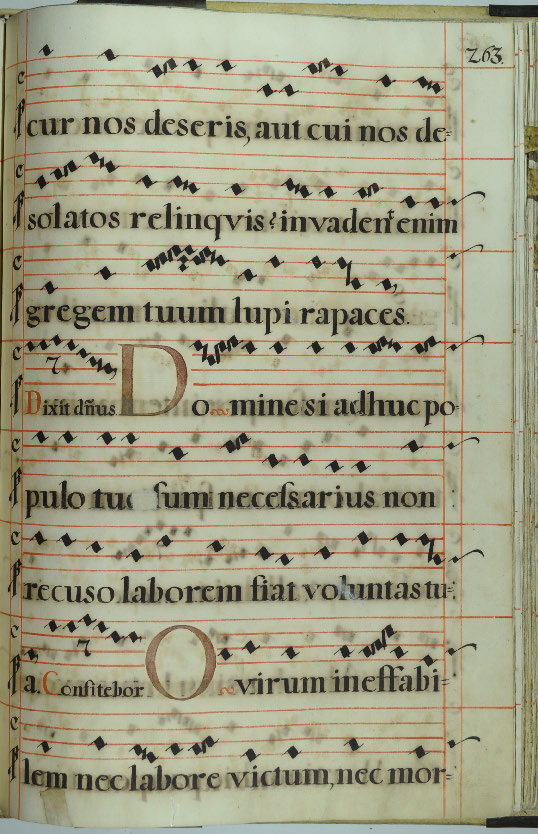 263.
cur nos deseris, aut cui nos de=
solatos relinqvis? invadent enim
gregem tuum lupi rapaces.
Dixit dñus Domine si adhuc po-
pulo tuo sum necessarius non
recuso laborem fiat voluntas tu-
a. Confitebor O virum ineffabi=
lem nec labore victum, nec mor=